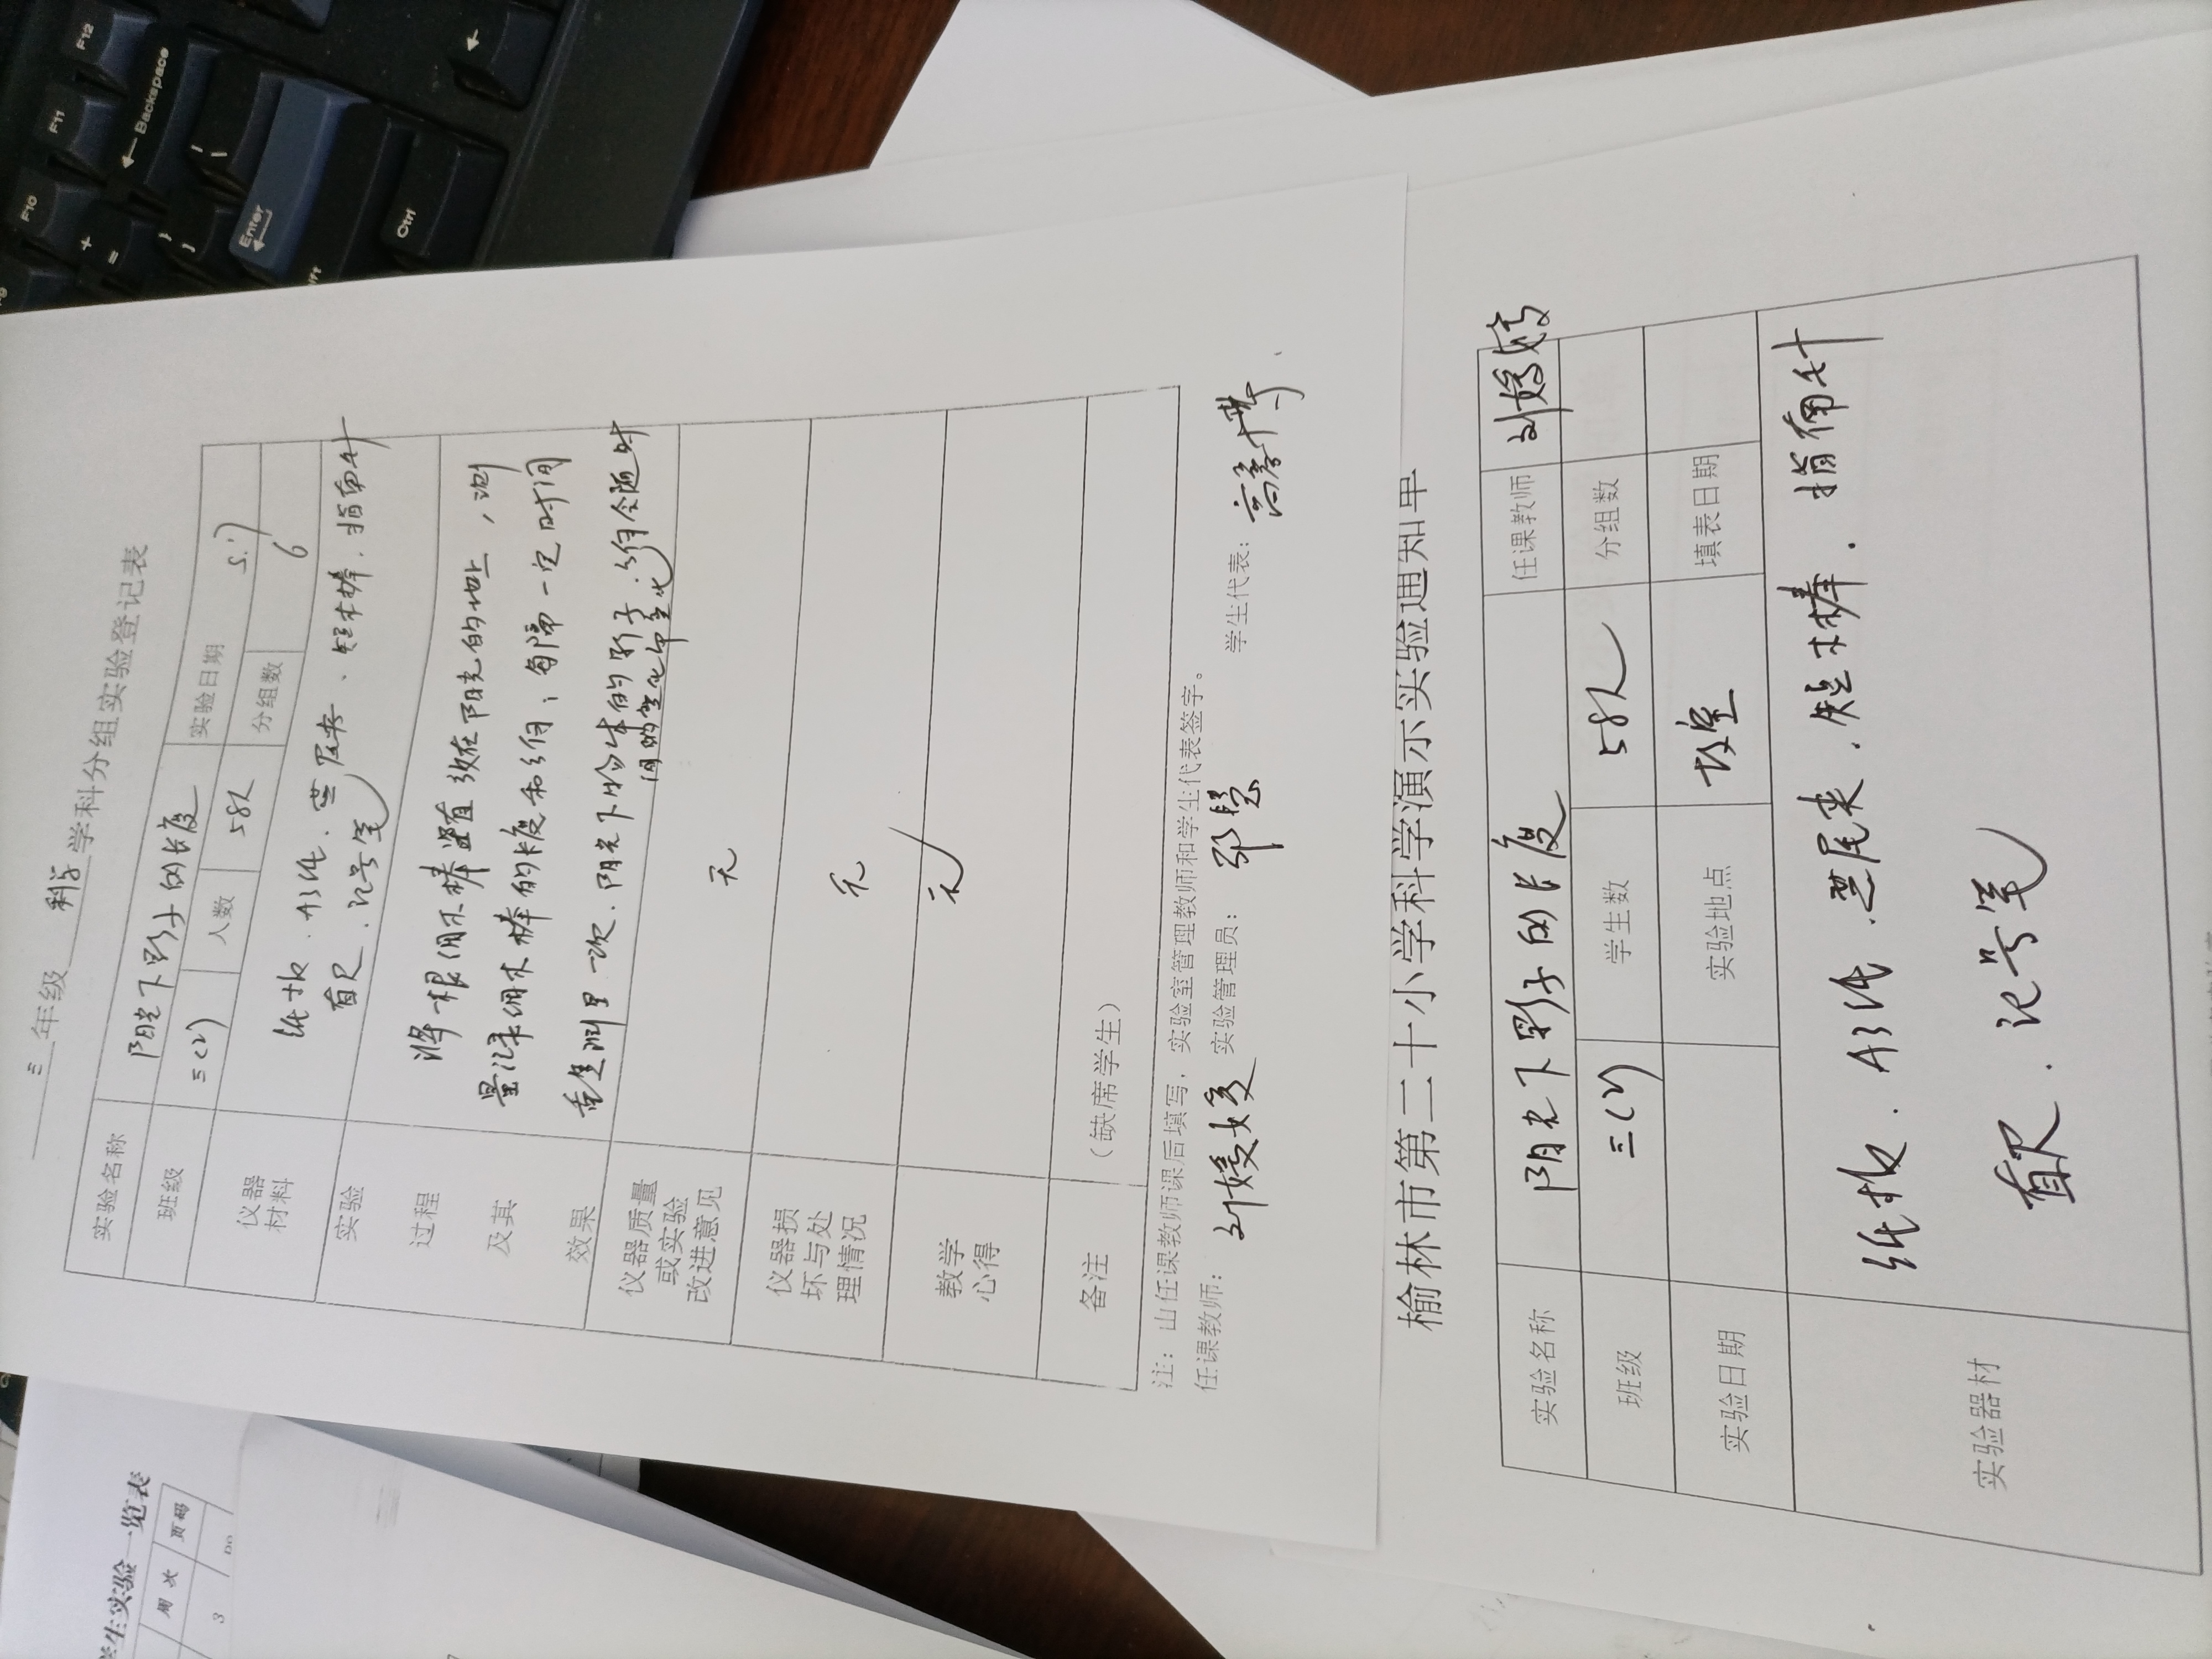 三年级 科学 学科分组实验登记表
实验名称 阳光下影子的长度 实验日期 5.7
班级 三(2) 人数 58人 分组数 6
仪器材料 纸板.A3纸.燕尾夹、短木棒.指南针
直尺.记号笔
实验过程及其效果
将一根细木棒竖直放在阳光的地上,测
量记录细木棒的长度和方向;每隔一定时间
重复测量一次.阳光下物体的影子.方向会随时
间的变化而变化
仪器质量或实验改进意见 无
仪器损坏与处理情况 无
教学心得 无
备注 (缺席学生)
注:由任课教师课后填写,实验室管理教师和学生代表签字。
任课教师: 实验管理员: 学生代表:
榆林市第二十小学科学演示实验通知单
实验名称 阳光下影子的长度 任课教师
班级 三(2) 学生数 58人 分组数
实验日期 实验地点 教室 填表日期
实验器材 纸板.A3纸.燕尾夹.短木棒.指南针
直尺.记号笔
学生实验一览表
周次 页码
3
F12
F11
F10
Backspace
Enter
Ctrl
+
=